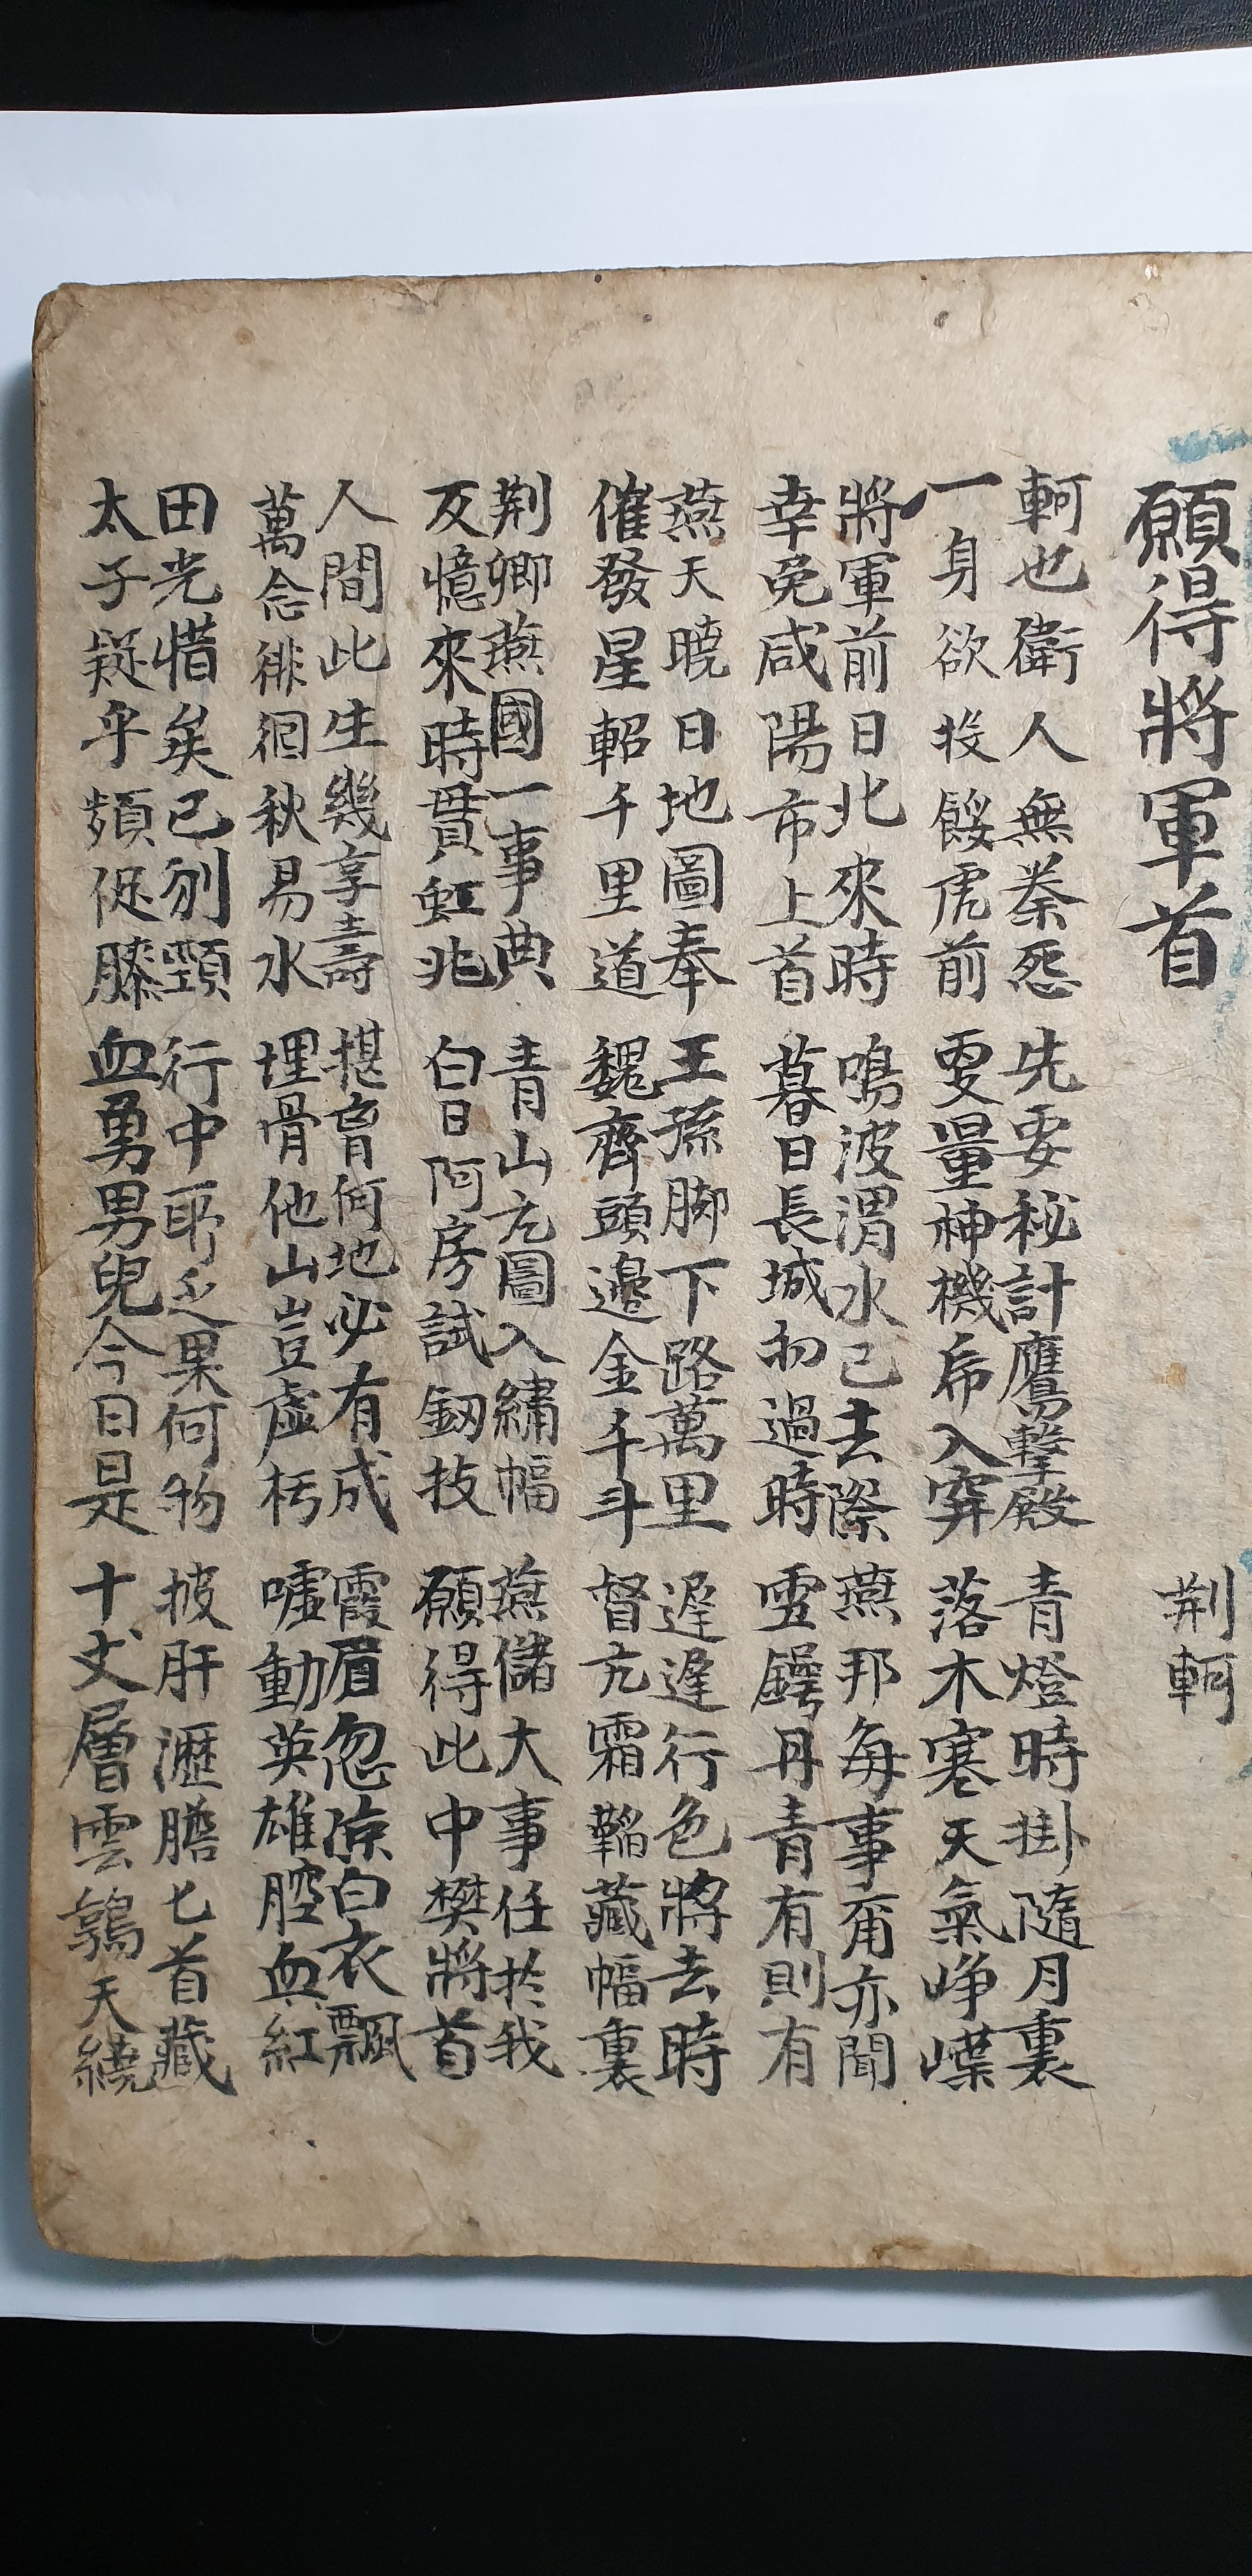 願得將軍首 荆軻
軻也衛人無秦怨 先要秘計鷹擊殿 青燈時掛隨月裏
一身欲投餒虎前 更量神機乕入穽 落木寒天氣崢嶸
將軍前日北來時 鳴波渭水已去際 燕邦每事亦聞
幸免咸陽市上首 暮日長城初過時 鍔丹青有則有
燕天曉日地圖奉 王孫脚下路萬里 遲遲行色將去時
催發星軺千里道 魏齊頭邊金千斗 督亢霜韜藏幅裏
荆卿燕國一事典 青山亢圖入繡幅 燕儲大事任於我
反憶來時貫虹兆 白日阿房試釰技 願得此中樊將首
人間此生幾享壽 揕胷何地必有成 霞眉忽凉白衣飄
萬念徘徊秋易水 埋骨他山豈虛朽 噓動英雄腔血紅
田光惜矣已刎頸 行中所乏果何物 披肝瀝膽匕首藏
太子疑乎頻促膝 血勇男兒今日是 十丈層雲鶉天繞